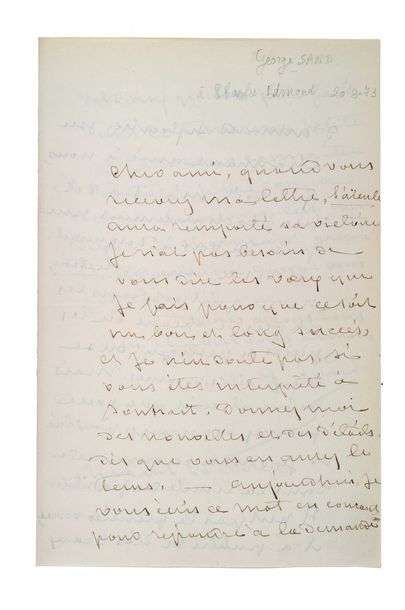 George SAND
à Charles Edmond 20-8-73
cher ami, quand vous
recevrez ma lettre, l'aïeule
aura remporté sa victoire
Je n'ai pas besoin de
vous dire les vœux que
Je fais pour que ce soit
un bon et long succès,
et Je n'en doute pas si
vous êtes interprété à
souhait. Donnez moi
des nouvelles et des détails
dès que vous en aurez le
tems. — aujourd'hui Je
vous écris ce mot en courant
pour répondre à la demande